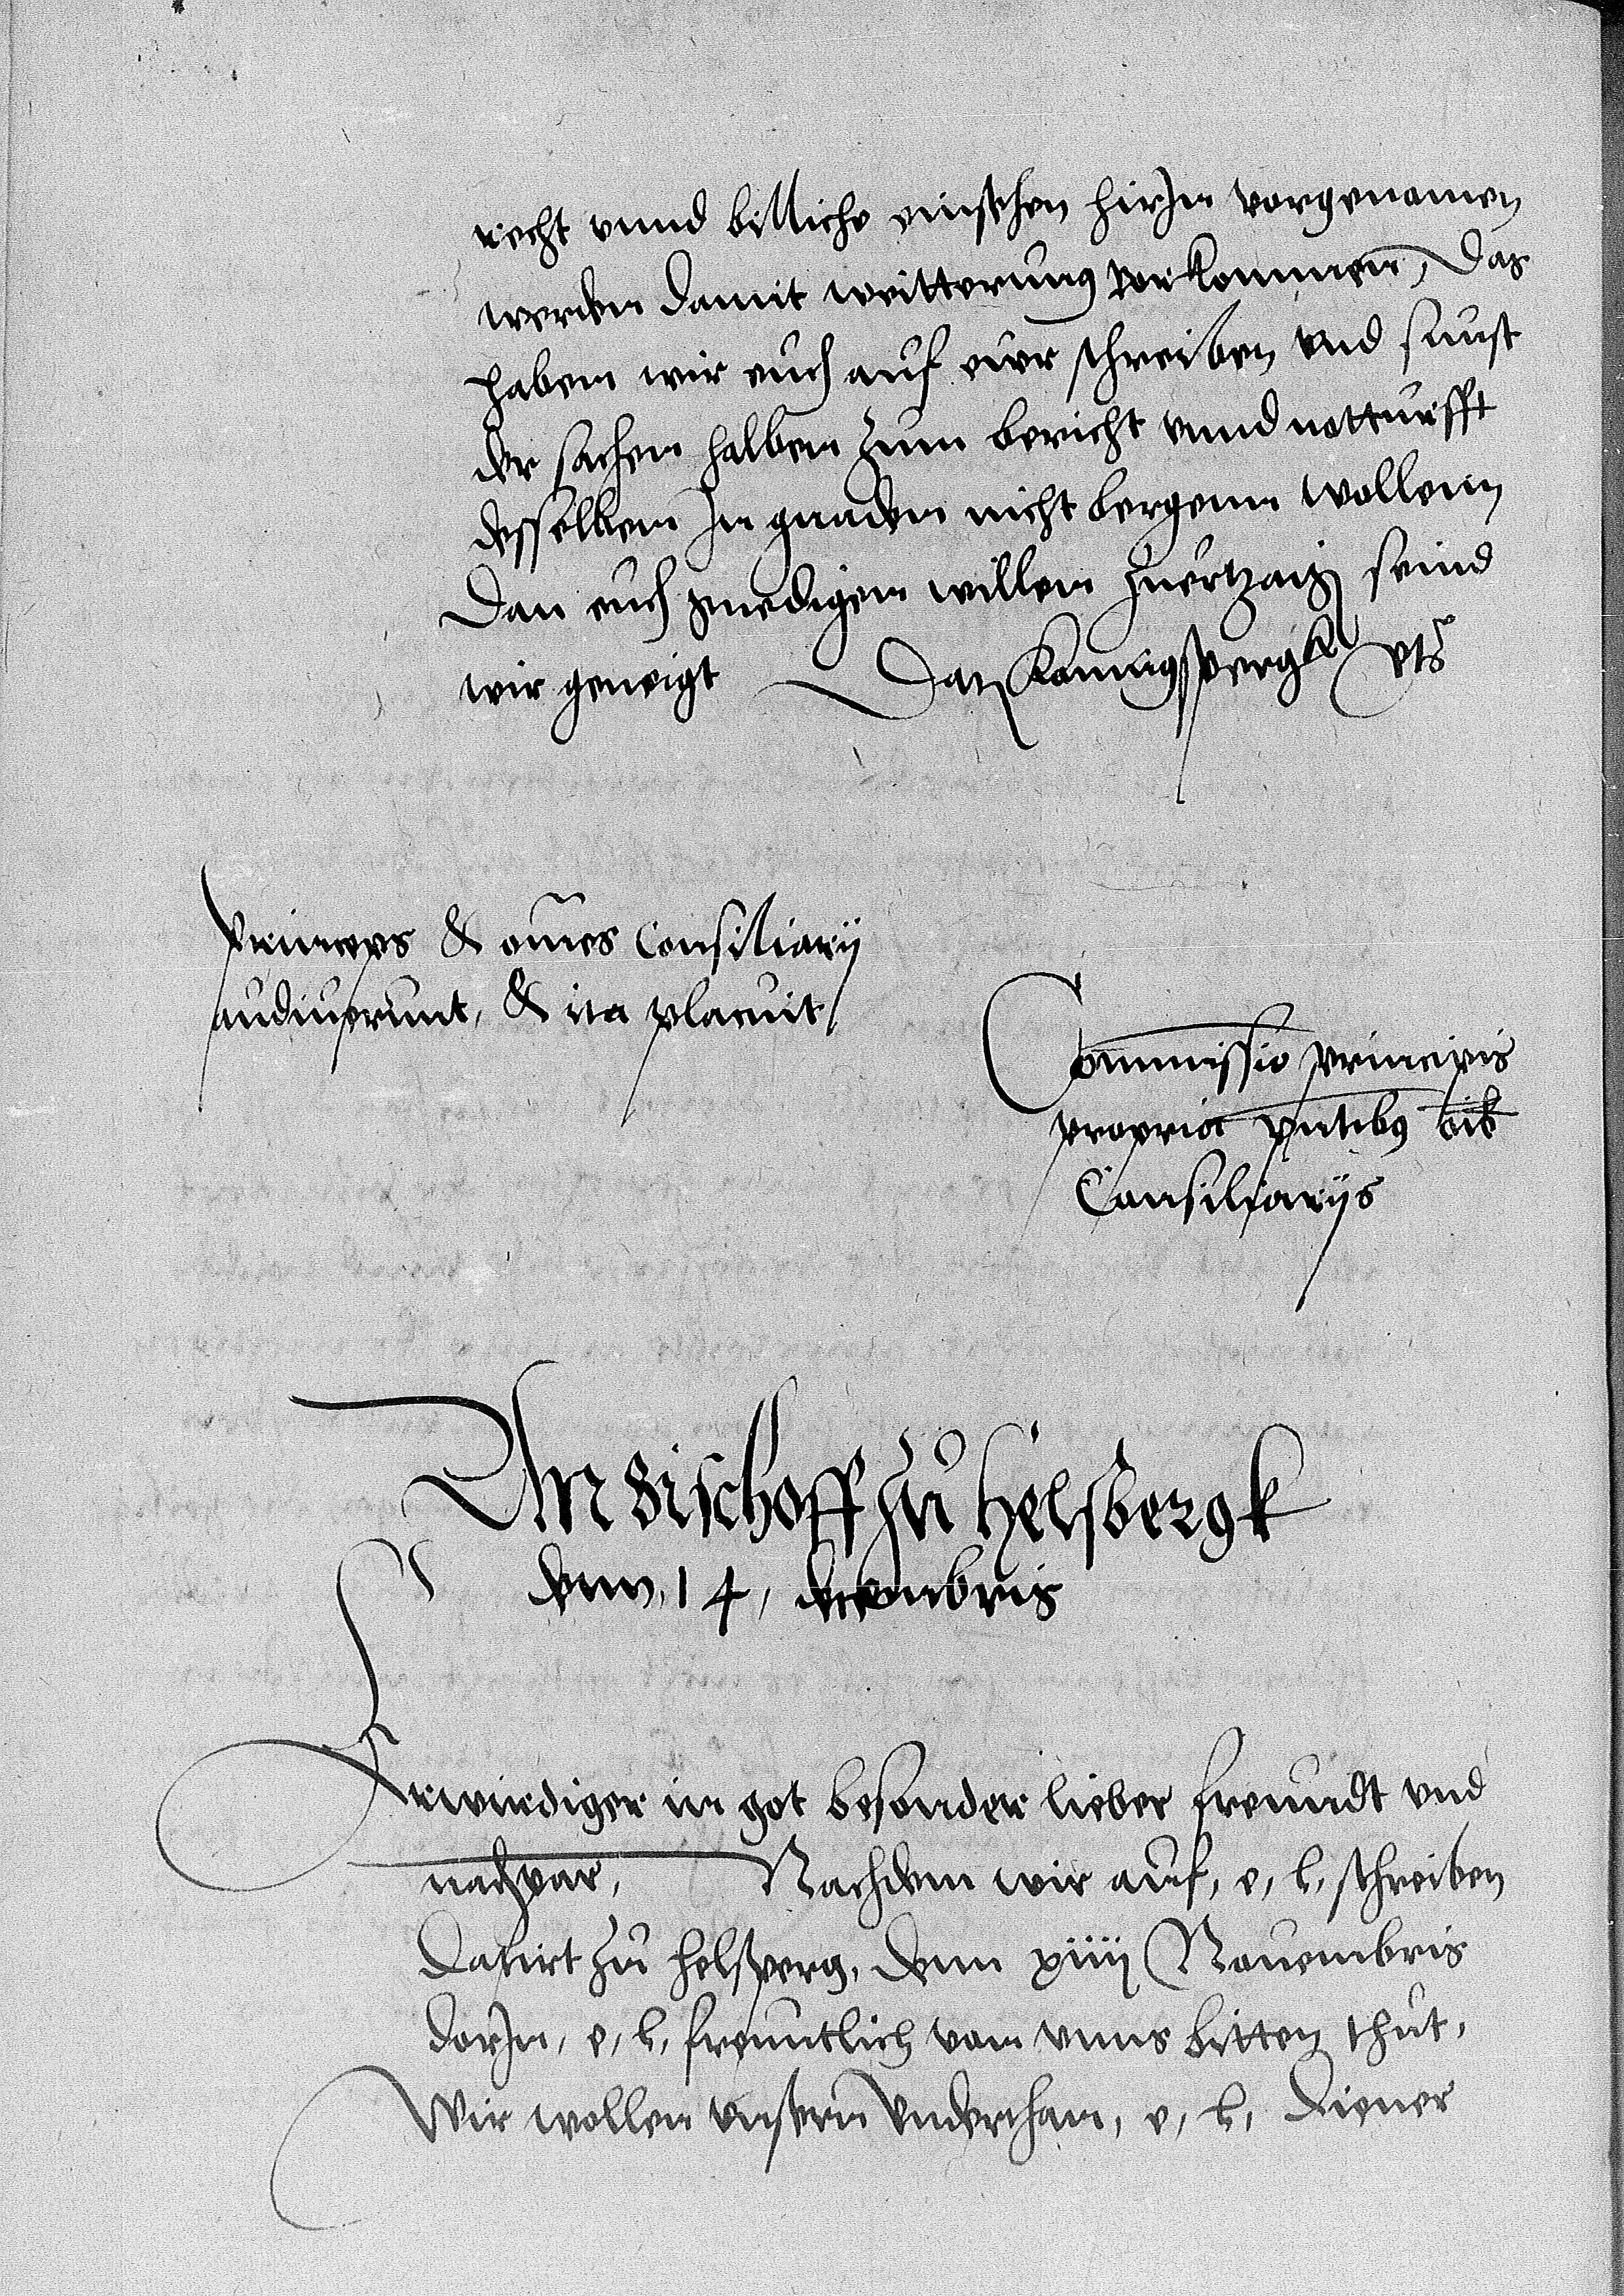 recht vnnd billichs einsehen hirJnn vorgenomen
werden damit weitterung vorkommen, Das
haben wir euch auf eur schreiben vnd sunst
der sachen halben zum bericht vnnd notturfft
desselben Jn gnaden nicht bergenn wollenn
Dan euch gnedigen willen zuertzaig seind
wir geneigt Dat Konnigsspergk vts
Princeps & om̄es Consiliarij
audiuerunt, & ita placuit
Commissio principis
propria pn̄tibus oīb
Consiliarijs
An Bischoff zu Helsbergk
denn 14 decembris
Erwirdiger in got besonder lieber freundt vnd
nachpar, Nachdem wir auf, e, l, schreiben
Datirt zu helsperg, denn xiiij Nouembris
dorJn, e, l, freuntlich von vnns bitten thut,
Wir wollen vnsern vnderthan, e, l, diener